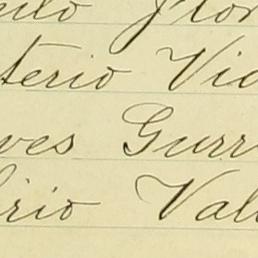 ulo Flor
terio Vic
ves Gurr
rio Vall